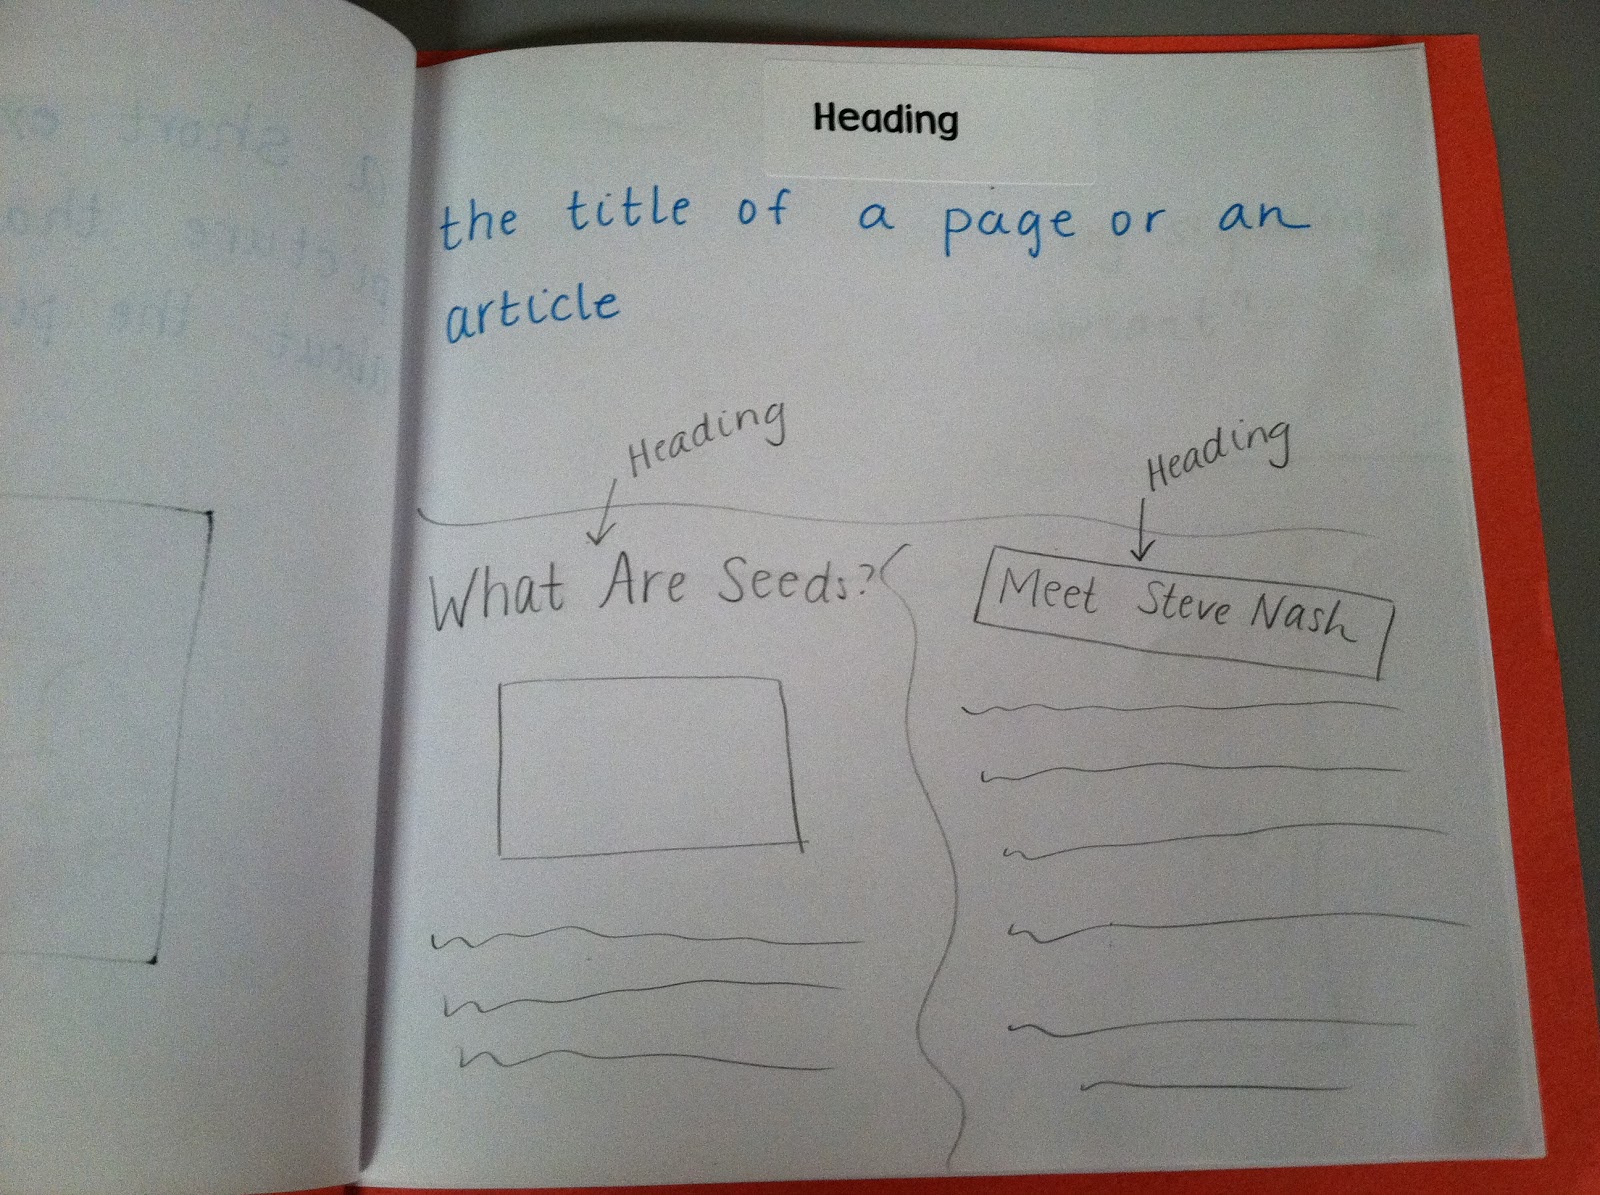 Heading
the title of a page or an
article
Heading
What Are Seeds?
Heading
Meet Steve Nash